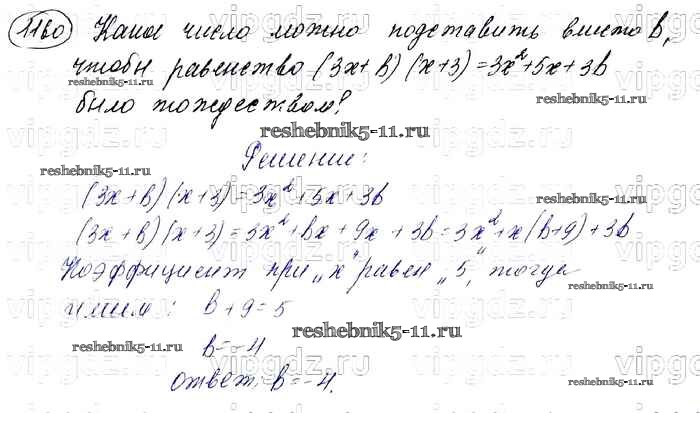 1160 Какое число можно подставить вместо b,
чтобы равенство (3x+b)(x+3)=3x²+5x+3b
было тождеством?
reshebnik5-11.ru
reshebnik5-11.ru
Решение:
reshebnik5-11.ru
(3x+b)(x+3)=3x²+5x+3b
(3x+b)(x+3)=3x²+bx+9x+3b=3x²+x(b+9)+3b
Коэффициент при „x" равен „5", тогда
имеем: b+9=5
reshebnik5-11.ru
b=-4
reshebnik5-11.ru
reshebnik5-11.ru
ответ: b=-4.